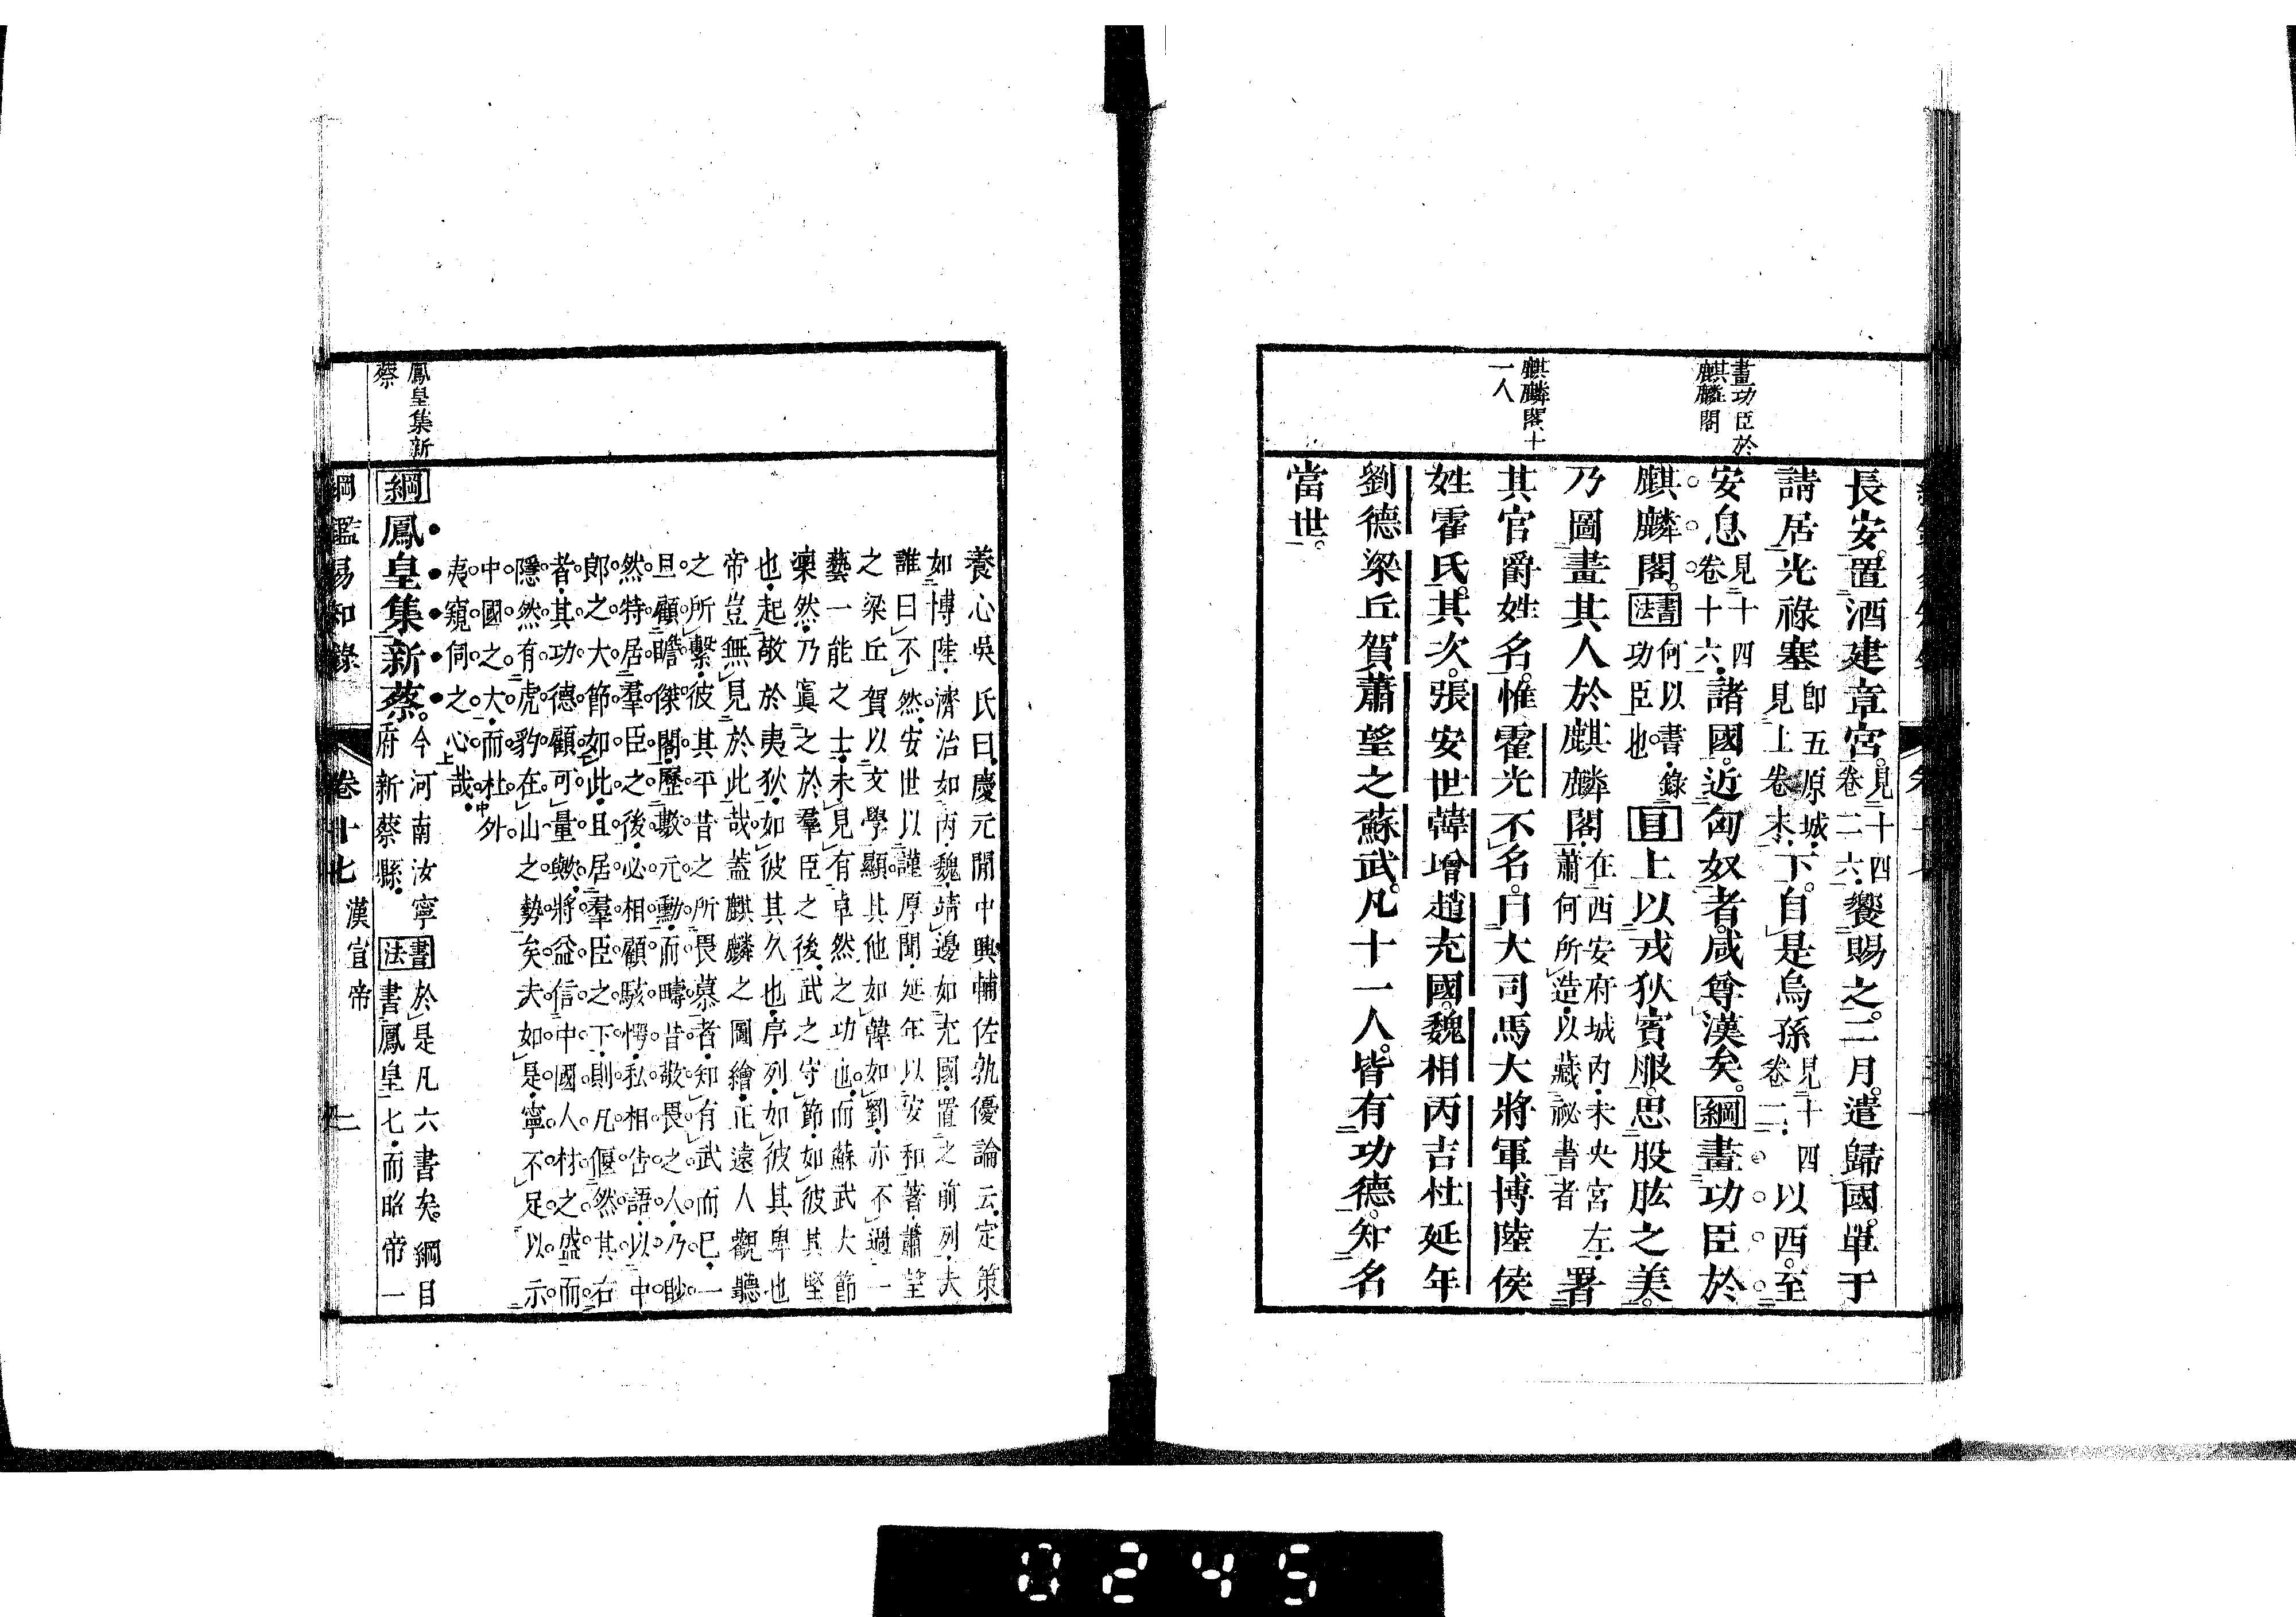 畫功臣於
麒麟閣
麒麟閣十
一人
長安。置酒建章宮。見十四卷二六。饗賜之。二月。遣歸國。單于
請居光祿塞見上卷末。卽五原城。下。自是烏孫見十四卷二二。以西。至
安息見十四卷十六。諸國。近匈奴者。咸尊漢矣。綱畫功臣於
麒麟閣。書法何以書。錄功臣也。目上以戎狄賓服。思股肱之美。
乃圖畫其人於麒麟閣。在西安府城內。未央宮左。蕭何所造。以藏祕書者署
其官爵姓名。惟霍光不名。曰大司馬大將軍博陸侯
姓霍氏。其次。張安世韓增趙充國。魏相丙吉杜延年
劉德梁丘賀蕭望之蘇武。凡十一人。皆有功德。知名
當世。
養心吳氏曰。慶元間中興輔佐孰優論云。定策
如博陸。濟治如丙魏。靖邊如充國。置之前列。夫
誰曰不然。安世以謹厚聞。延年以安和著。蕭望
之梁丘賀以文學顯。其他如韓如劉。亦不過一
藝一能之士。未見有卓然之功也。而蘇武大節
凜然。乃寘之於羣臣之後。武之守節。如彼其堅
也。起敬於夷狄。如彼其久也。序列如彼其卑也
帝豈無見於此哉。蓋麒麟之圖繪。正遠人觀聽
之所繫。彼其平昔之所畏慕者。知有武而已。一
旦顧瞻傑閣。歷數元勳。而疇昔敬畏之人。乃眇
然特居羣臣之後。必相顧駭愕。私相告語。以中
郞之大節如此。且居羣臣之下。則凡偃然其右
者。其功德顧可量歟。將益信中國人材之盛。而
隱然有虎豹在山之勢矣。夫如是。寧不足以示
中國之大。而杜外
夷窺伺之心哉。
鳳皇集新
蔡
綱鳳皇集新蔡。今河南汝寧府新蔡縣。書法於是凡六書矣。綱目書鳳皇七。而昭帝一
綱鑑易知錄 卷十七 漢宣帝 二
0245